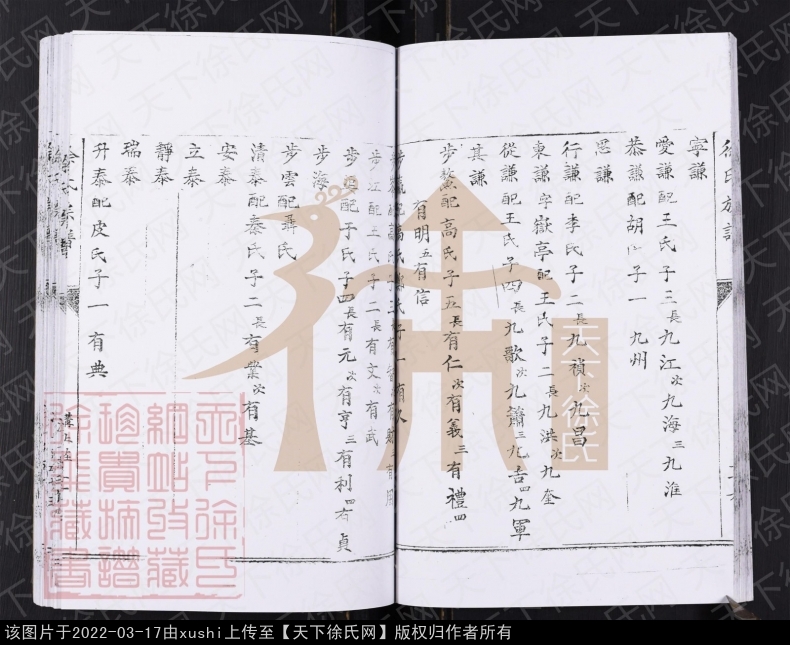 徐氏族譜
寧謙
愛謙配王氏子三長九江次九海三九淮
恭謙配胡氏子一 九州
思謙
行謙配李氏子二長九禎次九昌
東謙字嶽亭配王氏子二長九洪次九奎
從謙配王氏子四長九歌次九蕭三九吉四九軍
其謙
步鰲配高氏子五長有仁次有義三有禮四
有明五有信
步江配王氏子二長有文次有武
配于氏子四長有元次有亨三有利四有貞
步海
步雲配聶氏
清泰配秦氏子二長有業次有基
安泰
立泰
靜泰
瑞泰
升泰配皮氏子一 有典
天下徐氏
天下徐氏网
该图片于2022-03-17由xushi上传至【天下徐氏网】版权归作者所有